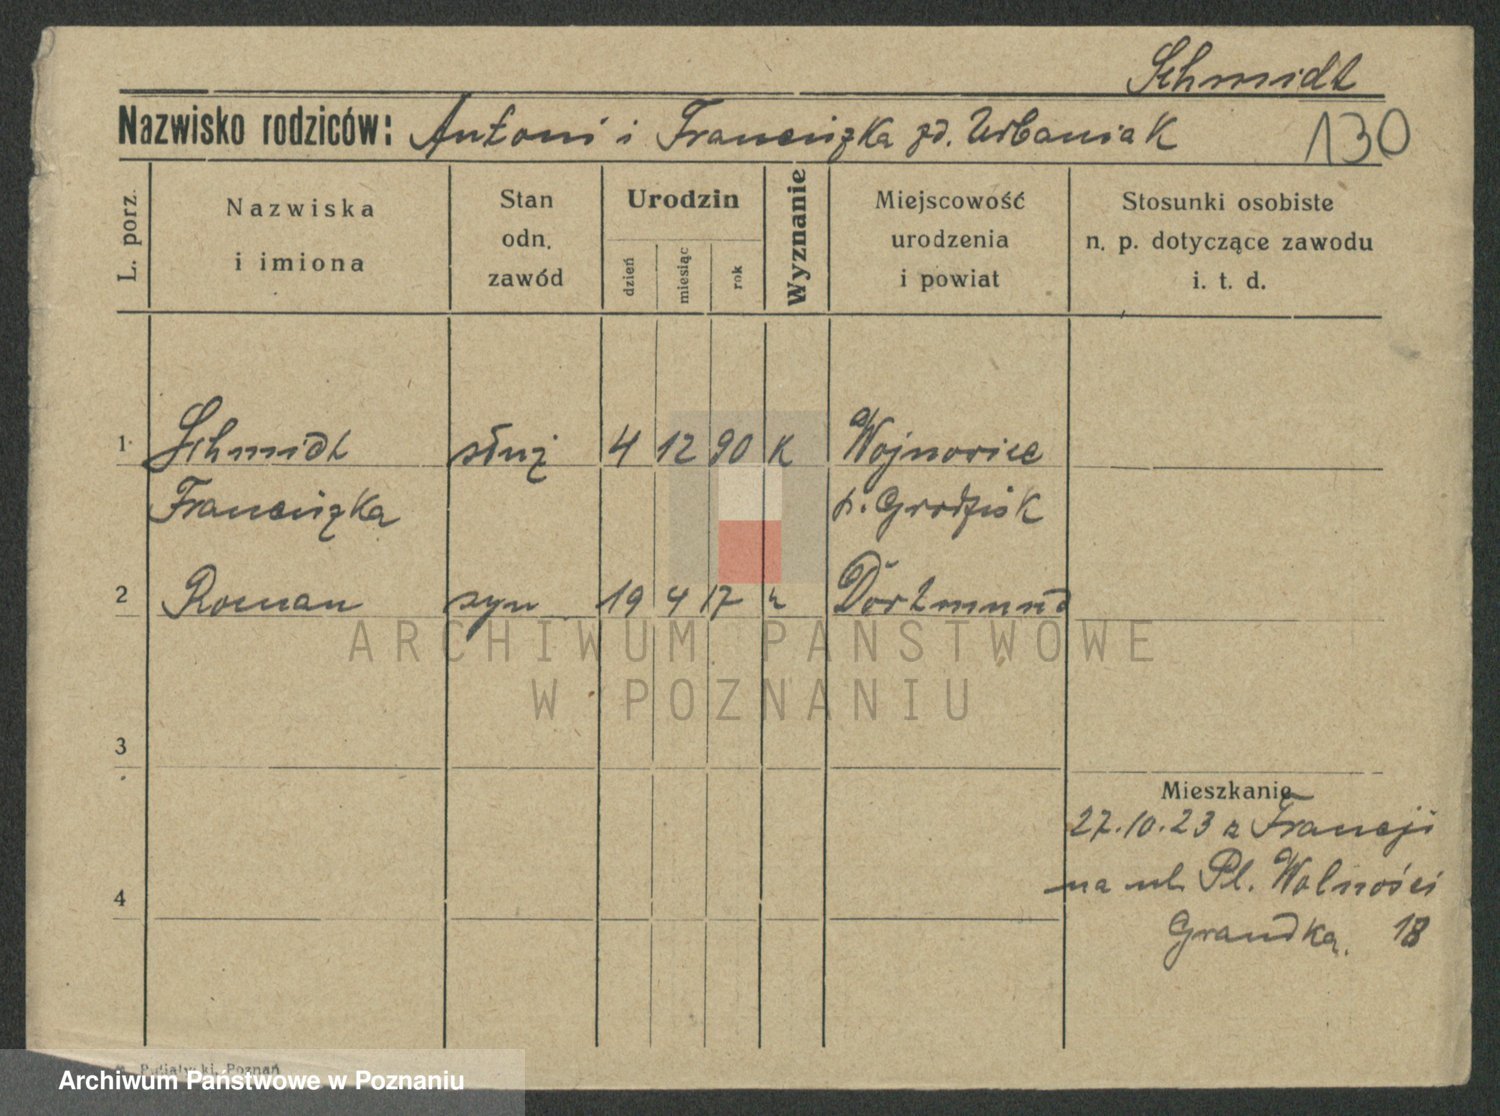 Schmidt
Nazwisko rodziców: Antoni i Franciszka zd. Urbaniak 130
L. porz.
Nazwiska
i imiona
Stan
odn.
zawód
Urodzin
dzień
miesiąc
rok
Wyznanie
Miejscowość
urodzenia
i powiat
Stosunki osobiste
n. p. dotyczące zawodu
i. t. d.
1. Schmidt służ 4 12 90 K Wojnowice
Franciszka p. Grodzisk
2 Roman syn 19 4 17 Dortmund
ARCHIWUM PAŃSTWOWE
W POZNANIU
3
Mieszkanie
27.10.23 z Francji
na ul. Pl. Wolności
4
18
Poznań
Archiwum Państwowe w Poznaniu